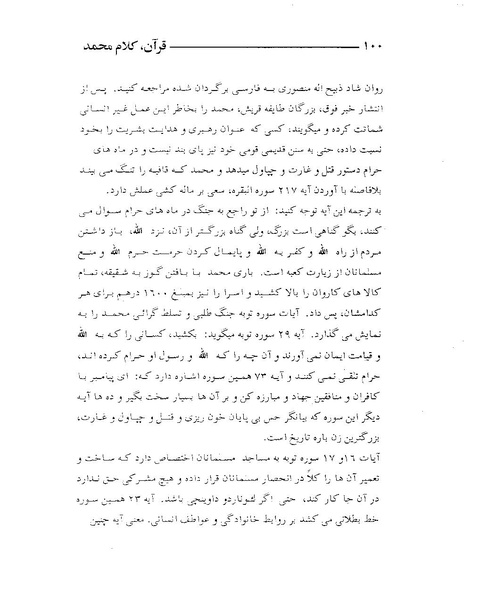 ۱۰۰ قرآن، کلام محمد
روان شاد ذبیح اله منصوری به فارسی برگردان شده مراجعه کنید. پس از
انتشار خبر فوق، بزرگان طایفه قریش، محمد را بخاطر این عمل غیر انسانی
شماتت کرده و میگویند، کسی که عنوان رهبری و هدایت بشریت را بخود
نسبت داده، حتی به سنن قدیمی قومی خود نیز پای بند نیست و در ماه های
حرام دستور قتل و غارت و چپاول میدهد و محمد که قافیه را تنگ می بیند
بلافاصله با آوردن آیه ۲۱۷ سوره البقره، سعی بر ماله کشی عملش دارد.
به ترجمه این آیه توجه کنید: از تو راجع به جنگ در ماه های حرام سوال می
کنند، بگو گناهی است بزرگ، ولی گناه بزرگتر از آن، نزد الله، باز داشتن
مردم از راه الله و کفر به الله و پایمال کردن حرمت حرم الله و منع
مسلمانان از زیارت کعبه است. باری محمد با بافتن گوز به شقیقه، تمام
کالا های کاروان را بالا کشید و اسرا را نیز بمبلغ ۱۶۰۰ درهم برای هر
کدامشان، پس داد. آیات سوره توبه جنگ طلبی و تسلط گرائی محمد را به
نمایش می گذارد. آیه ۲۹ سوره توبه میگوید: بکشید، کسانی را که به الله
و قیامت ایمان نمی آورند و آن چه را که الله و رسول او حرام کرده اند،
حرام تلقی نمی کنند و آیه ۷۳ همین سوره اشاره دارد که: ای پیامبر با
کافران و منافقین جهاد و مبارزه کن و بر آن ها بسیار سخت بگیر و ده ها آیه
دیگر این سوره که بیانگر حس بی پایان خون ریزی و قتل و چپاول و غارت،
بزرگترین زن باره تاریخ است.
آیات ۱۶و ۱۷ سوره توبه به مساجد مسلمانان اختصاص دارد که ساخت و
تعمیر آن ها را کلاً در انحصار مسلمانان قرار داده و هیچ مشرکی حق ندارد
در آن جا کار کند، حتی اگر لئوناردو داوینچی باشد. آیه ۲۳ همین سوره
خط بطلانی می کشد بر روابط خانوادگی و عواطف انسانی. معنی آیه چنین